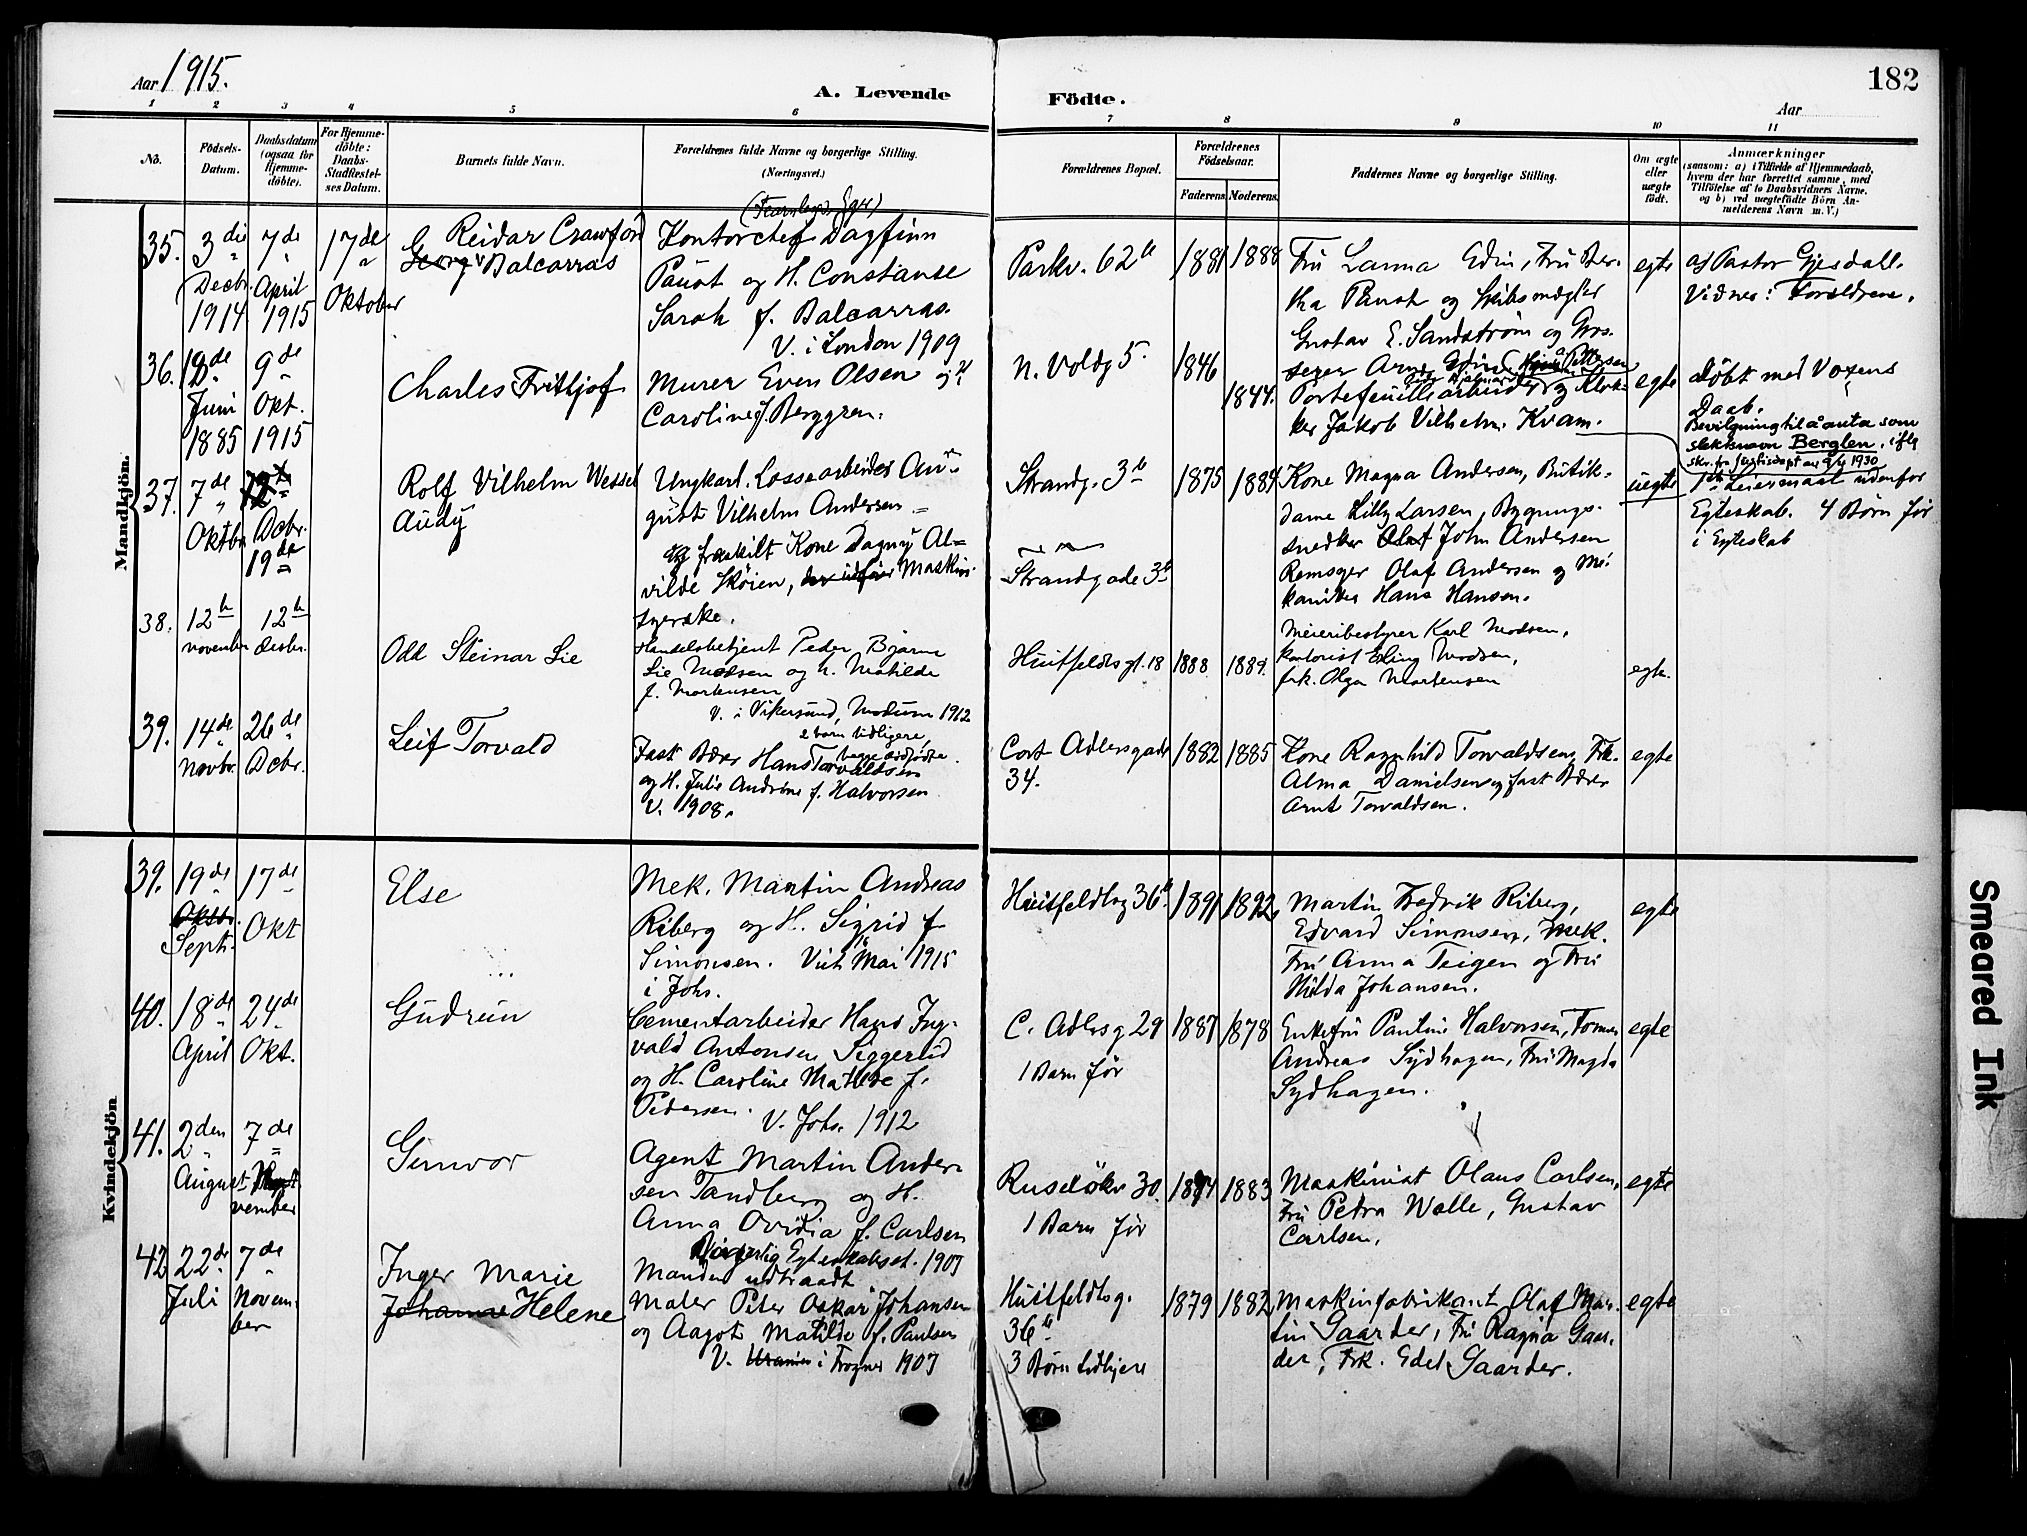 Aar 1915.
A. Levende Födte.
Aar
182
1 2 3 4 5 6 7 8 9 10 11
No.
Födsels-
Datum.
Daabsdatum
(ogsaa for
Hjemme-
döbte).
For Hjemme-
döbte:
Daabs-
Stadfæstel-
ses Datum.
Barnets fulde Navn.
Forældrenes fulde Navne og borgerlige Stilling.
(Næringsvei.)
Forældrenes Bopæl.
Forældrenes
Födselsaar.
Faderens Moderens.
Faddernes Navne og borgerlige Stilling.
Om ægte
eller
uægte
födt.
Anmærkninger
(saasom: a) i Tilfælde af Hjemmedaab,
hvem der har forrettet samme, med
Tilföielse af to Daabsvidners Navne,
og b) ved uægtefödte Börn An-
melderens Navn m. V.)
Mandkjön.
35.
3die
Decbr.
1914
7de
April
1915
17de
Oktober
Reidar Crawford
Georg Balcarras
Kontorchef Dagfinn
Paust og H. Constanse
Sarah f. Balcarras.
V. i London 1909
Parkv. 62b
1881
1888
Fru Lanna Edin, Fru Ber-
tha Paust og Skibsmægler
Gustav E. Sandström og Gros-
serer Arne Edin
egte
af Pastor Gjesdall.
Vidner: Foreldrene.
36.
de
Juni
1885
9de
Okt.
1915
Charles Frithjof
Murer Even Olsen og H
Caroline f. Berggren.
n. Voldg 5.
1846
1844.
Portefeuillearbeider og Klok-
ker Jakob Vilhelm Kvam.
egte
döbt med Voxens
Daab.
Bevilgning til å anta som
slektsnavn Berglen, iflg
skr. fra Justisdept av 9/4 1930
37.
7de
Oktbr
Dcbr.
19de
Rolf Vilhelm Wessel
Audy
Ungkarl. Lossearbeider Au-
gust Vilhelm Andersen
og fraskilt Kone Dagny Al-
vilde Sköien, Maskin-
syerske.
Strandg. 3b
Strandgade 3b
1875
1884
Kone Magna Andersen, Butik-
dame Lilly Larsen, Bygnings-
snedker Olaf John Andersen
Remsyer Olaf Andersen og Me-
kaniker Hans Hansen.
uegte
1ste Leiermaal udenfor
Egteskab. 4 Børn før
i Egteskab
38.
12te
november
12te
desbr.
Odd Steinar Lie
Handelsbetjent Peder Bjarne
Lie Madsen og h. Matilde
f. Mortensen
V. i Vikersund, Modum 1912
Huitfeldtsgt. 18
1888
1889.
Meieribestyrer Karl Madsen,
kontorist Erling Madsen,
frk. Olga Martensen
egte.
39.
14de
Novbr.
26de
Dcbr.
Leif Torvald
2 barn tidligere,
begge dødfødte.
Fast Bærer Hans Torvaldsen
og H. Julie Andrine f. Halvorsen
V. 1908.
Cort Adlersgade
34.
1882
1885
Kone Ragnhild Torvaldsen, Frk.
Alma Danielsen og fast Bærer
Arnt Torvaldsen.
egte
Kvindekjön
39.
19de
Oktbr.
Septr.
17de
Okt
Else
Mek. Martin Andreas
Riberg og H. Sigrid f
Simonsen. Viet Mai 1915
i Johs.
Huitfeldtsg 36b
1891
1892
Martin Fredrik Riberg,
Edvard Simonsen, Mek.
Fru Anna Teigen og Fru
Hilda Johansen.
egte
40.
18de
April
24de
Okt.
Gudrun
Cementarbeider Hans Ing-
vald Antonsen Siggerud
og H. Caroline Matilde f.
Pedersen.
V. Johs. 1912
C. Adlersg 29
1 Barn før
1887
1878
Enkefru Pauline Halvorsen, Tömmer
Andreas Sydhagen, Fru Magda
Sydhagen.
egte
41.
2den
August
7de
vember
Gunvor
Agent Martin Ander-
sen Tandberg og H.
Anna Ovidia f. Carlsen
Borgerlig Egteskabsst. 1907
Manden udtraadt
Ruselökv 30.
1 Barn før
1883
Maskinist Olaus Carlsen,
Fru Petra Walle, Gustav
Carlsen.
egte
42
22de
Juli
7de
Novem-
ber
Inger Marie
Johanne Helene
Maler Peter Oskar Johansen
og Aagot Matilde f. Paulsen
V. Uranien i Frogner 1907
Huitfeldtsg.
36b
3 Børn tidligere
1879
1882
Maskinfabrikant Olaf Mar-
tin Gaarder, Fru Ragna Gaar-
der, Frk. Edel Gaarder.
egte
Smeared Ink